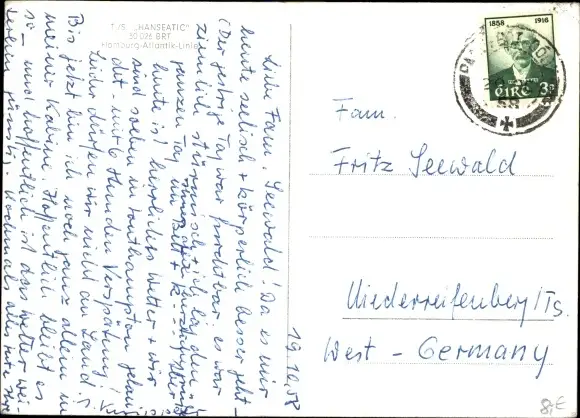 T/S. „HANSEATIC"
30 026 BRT
Hamburg-Atlantik-Linie
19.10.58
Liebe Fam. Seewald! Da es mir
heute seelisch + körperlich besser geht –
(Der gestrige Tag war furchtbar es war
ziemlich stürmisch + ich lag den
ganzen Tag im Bett +
heute ist herrliches Wetter + wir
sind soeben in Southampton gelan-
det mit 6 Stunden Verspätung!
Leider dürfen wir nicht an Land!
Bis jetzt bin ich noch ganz allein in
meiner Kabine. Hoffentlich bleibt es
so – und hoffentlich ist das Wetter wei-
terhin günstig. Nochmals alles Gute
1858 1916
ÉIRE 3p
58
Fam.
Fritz Seewald
Niederreifenberg/Ts.
West – Germany
8,E